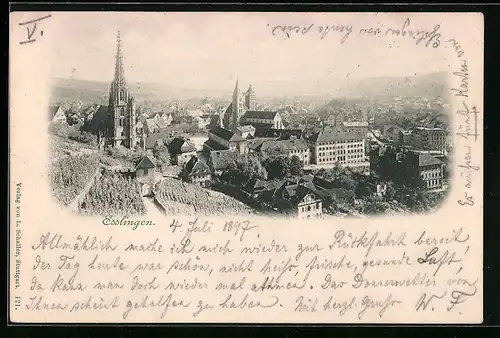 V.
Esslingen.
4. Juli 1897.
Allmählich mache ich mich wieder zur Rückfahrt bereit,
der Tag heute war schön, nicht heiß, frische, gesunde Luft
da kann man doch wieder mal athmen. Das Donnerwetter von
Ihnen scheint geholfen zu haben. Mit herzl. Gruß W. F.
Es mögen fünf Karten vor
Verlag von L. Schaller, Stuttgart. 121.